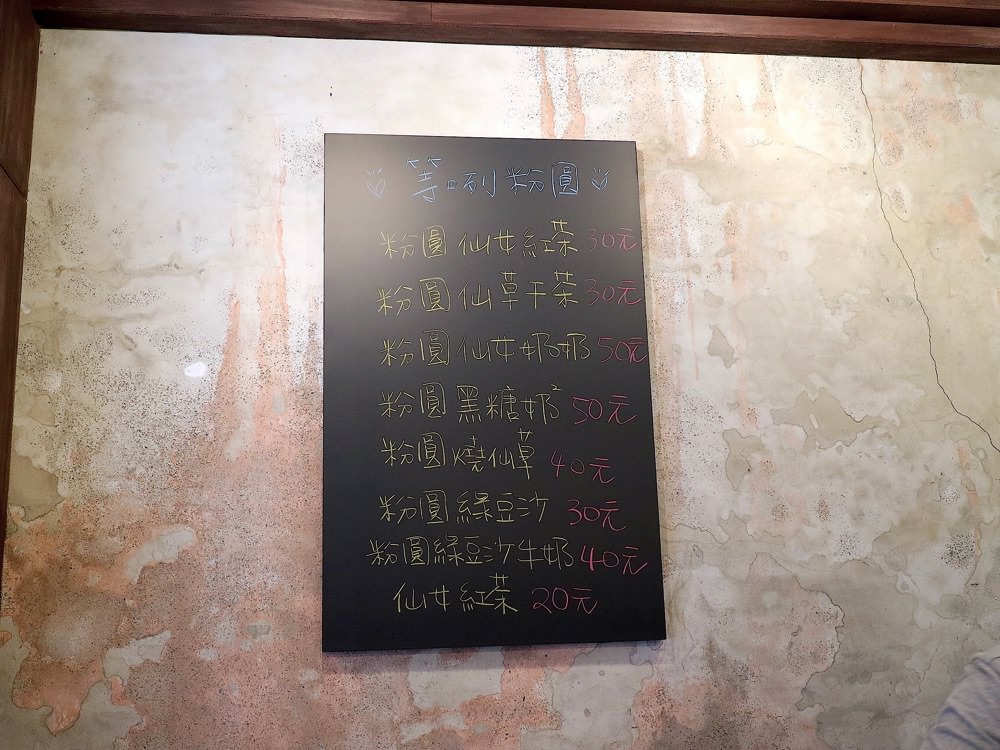 等咧粉圓
粉圓仙女紅茶 30元
粉圓仙草干茶 30元
粉圓仙女奶奶 50元
粉圓黑糖奶² 50元
粉圓燒仙草 40元
粉圓綠豆沙 30元
粉圓綠豆沙牛奶 40元
仙女紅茶 20元